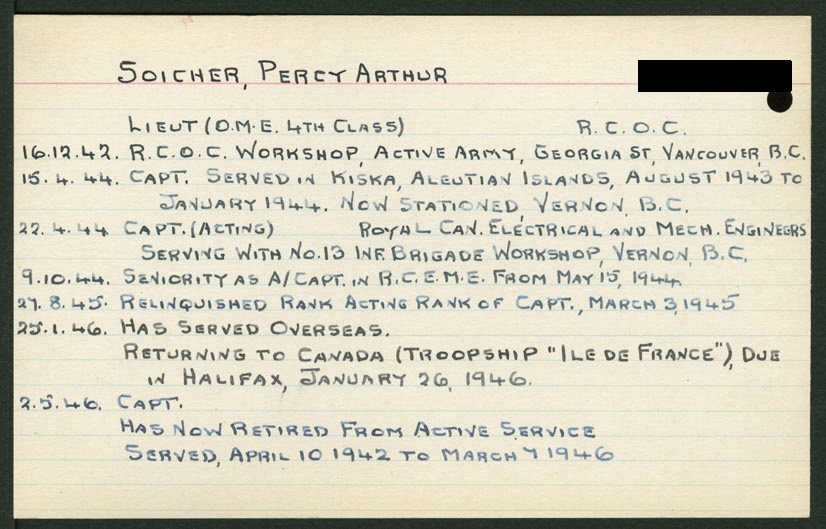 SOICHER, PERCY ARTHUR
LIEUT (O.M.E. 4TH CLASS) R.C.O.C.
16.12.42. R.C.O.C. WORKSHOP, ACTIVE ARMY, GEORGIA ST, VANCOUVER, B.C.
15.4.44. CAPT. SERVED IN KISKA, ALEUTIAN ISLANDS, AUGUST 1943 TO
JANUARY 1944. NOW STATIONED, VERNON, B.C.
22.4.44 CAPT. (ACTING) ROYAL CAN. ELECTRICAL AND MECH. ENGINEERS
SERVING WITH NO.13 INF. BRIGADE WORKSHOP, VERNON, B.C.
9.10.44. SENIORITY AS A/CAPT. IN R.C.E.M.E. FROM MAY 15, 1944.
27.8.45. RELINQUISHED RANK ACTING RANK OF CAPT., MARCH 3, 1945
25.1.46. HAS SERVED OVERSEAS.
RETURNING TO CANADA (TROOPSHIP "ILE DE FRANCE"), DUE
IN HALIFAX, JANUARY 26, 1946.
2.5.46. CAPT.
HAS NOW RETIRED FROM ACTIVE SERVICE
SERVED, APRIL 10 1942 TO MARCH 7 1946